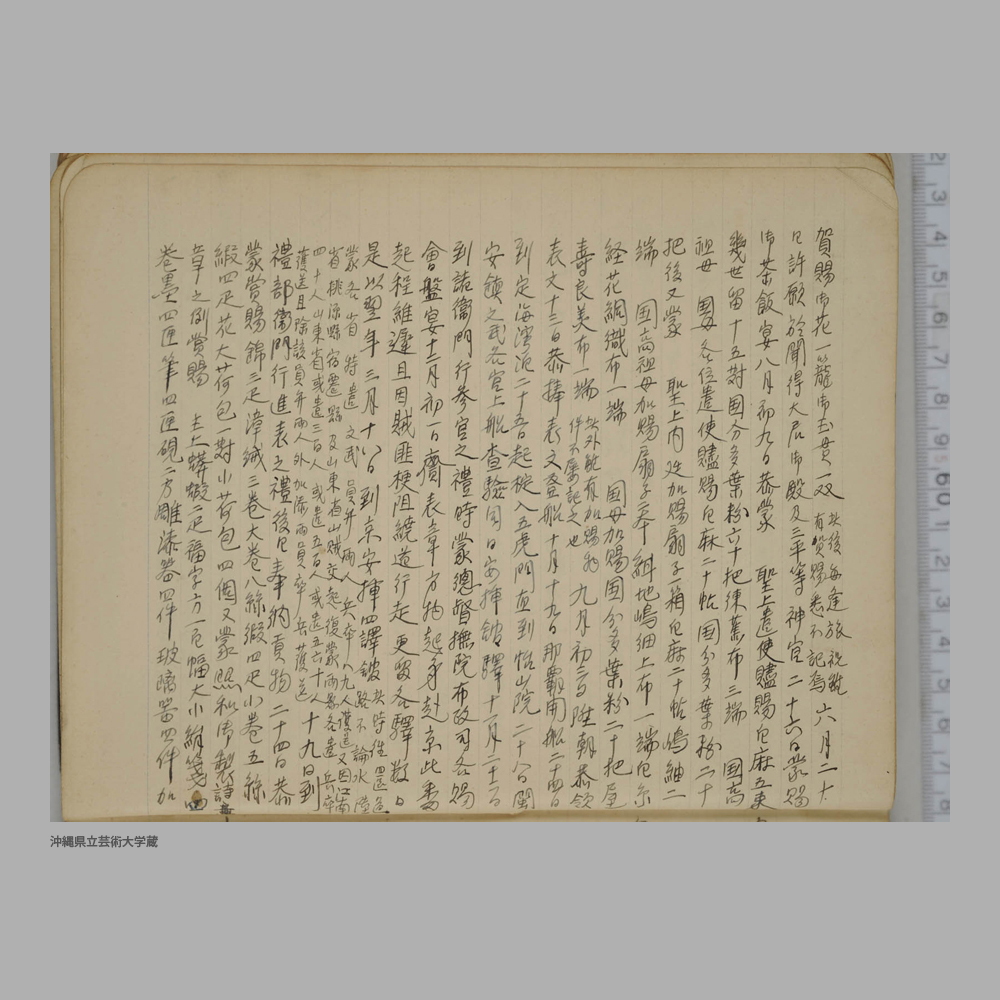 賀賜御花一籠御玉貫一双 此後每逢旅祝雖有賀賜悉不記焉 六月二十
日許願於聞得大君御殿及三平等 神宮二十六日蒙賜
御茶飯宴八月初九日恭蒙 聖上遣使贐賜官麻五束
幾世留十五對国分多葉粉六十把練蕉布三端 国高
祖母 國母各位遣使贐賜官麻二十帖国分多葉粉二十
把後又蒙 聖上內 加賜扇子一箱官麻二十帖嶋紬二
端 国高祖母加賜扇子 本 地嶋細上布一端官京
経花絅織布一端 国母加賜国分多葉粉二十把尾
壽良美布一端 此外 有加賜物件不屢記之也 九月初三日陞朝恭領
表文十三日恭捧表文登船十月十九日那覇開船二十四日
到定海灣泊二十五日起椗入五虎門直到怡山院二十八日閩
安鎮之武各官上船查驗同日安揷館驛十一月二十三日
到諸衙門行參官之禮時蒙總督撫院布政司各賜
會盤宴十二月初一日齎表章方物起身赴京此番
起程維遲且因賊匪梗阻繞道行走更留各驛數日
是以翌年三月十八日到京安揷四譯館 此時往還途路不論水陸
蒙各省特遣文武員弁兩人兵卒八九人護送又因江南
省桃源縣宿遷縣及山東省山賊交起復蒙兩省各遣兵卒
四十人山東省或遣三百人或遣五百人或遣五六十人
護送且除該員弁兩人外加添兩員率兵護送 十九日到
禮部衙門行進表之禮後日奉納貢物二十四日恭
蒙賞賜錦三疋漳絨三卷大卷八絲緞四疋小卷五絲
緞四疋花大荷包一對小荷包四個又蒙照和御製詩
章之例賞賜 主上蟒緞二疋福字方一百幅大小絹箋四
卷墨四匣筆四匣硯二方雕漆器四件玻璃器四件加
沖縄県立芸術大学蔵